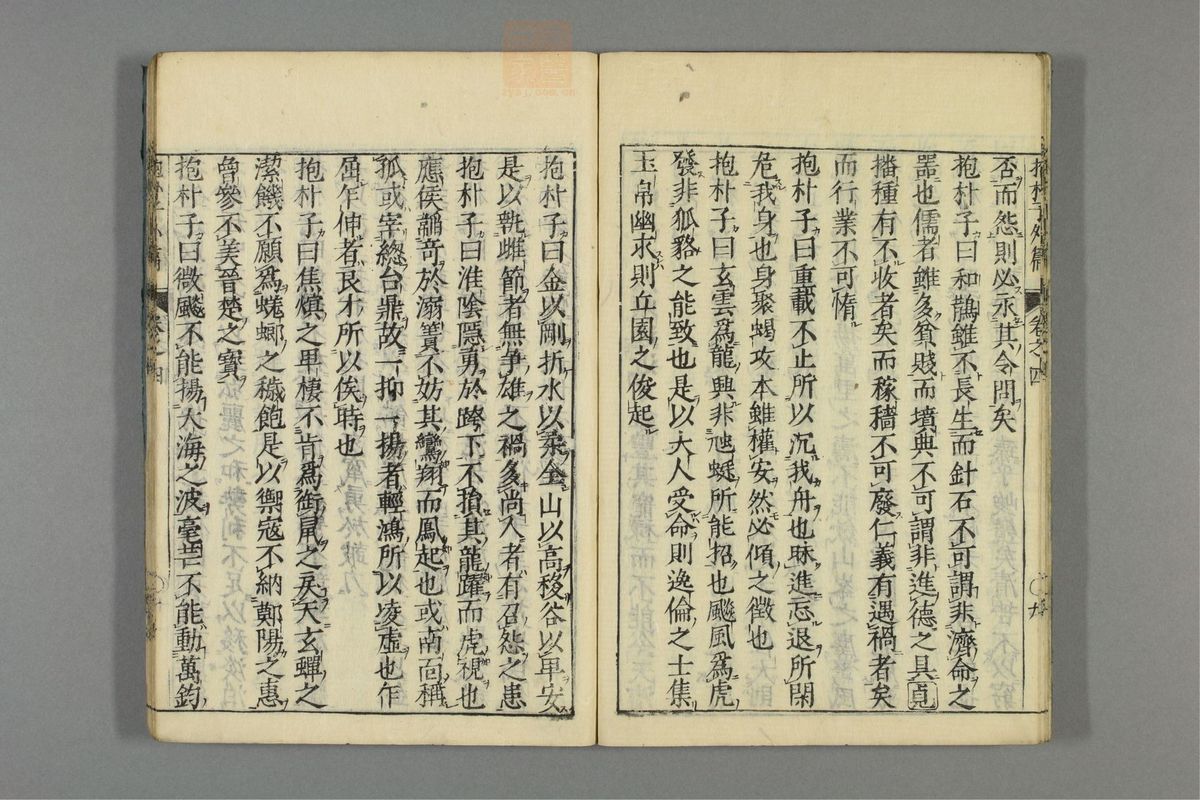 否而怨則必永其令問矣
抱朴子曰和鵲雖不長生而針石不可謂非濟命之
噐也儒者雖多貧賤而墳典不可謂非進德之具
播種有不收者矣而稼穡不可廢仁義有遇禍者矣
而行業不可惰
抱朴子曰重載不止所以沉我舟也昧進忘退所
危我身也身聚蝎攻本雖權安然必傾之徵也
抱朴子曰玄雲爲龍興非虵蜓所能招也飈風爲虎
發非狐貉之能致也是以大人受命則逸倫之士集
玉帛幽求則丘園之俊起
抱朴子外篇
卷之四
抱朴子曰金以剛折水以柔全山以高移谷以卑安
是以執雌節者無爭雄之禍多尚人者有召怨之患
抱朴子曰淮陰隱勇於跨下不損其龍躍而虎視也
應侯韜奇於溺簀不妨其鸞翔而鳳起也或南面稱
孤或宰總台鼎故一抑一揚者輕鴻所以凌虛也乍
屈乍伸者良才所以俟時也
抱朴子曰焦螟之卑棲不肯爲銜鼠之戾天玄蟬之
潔饑不願爲蜣蜋之穢飽是以禦寇不納鄭陽之惠
曾參不美晉楚之寶
抱朴子曰微飈不能揚大海之波毫芒不能動萬鈞